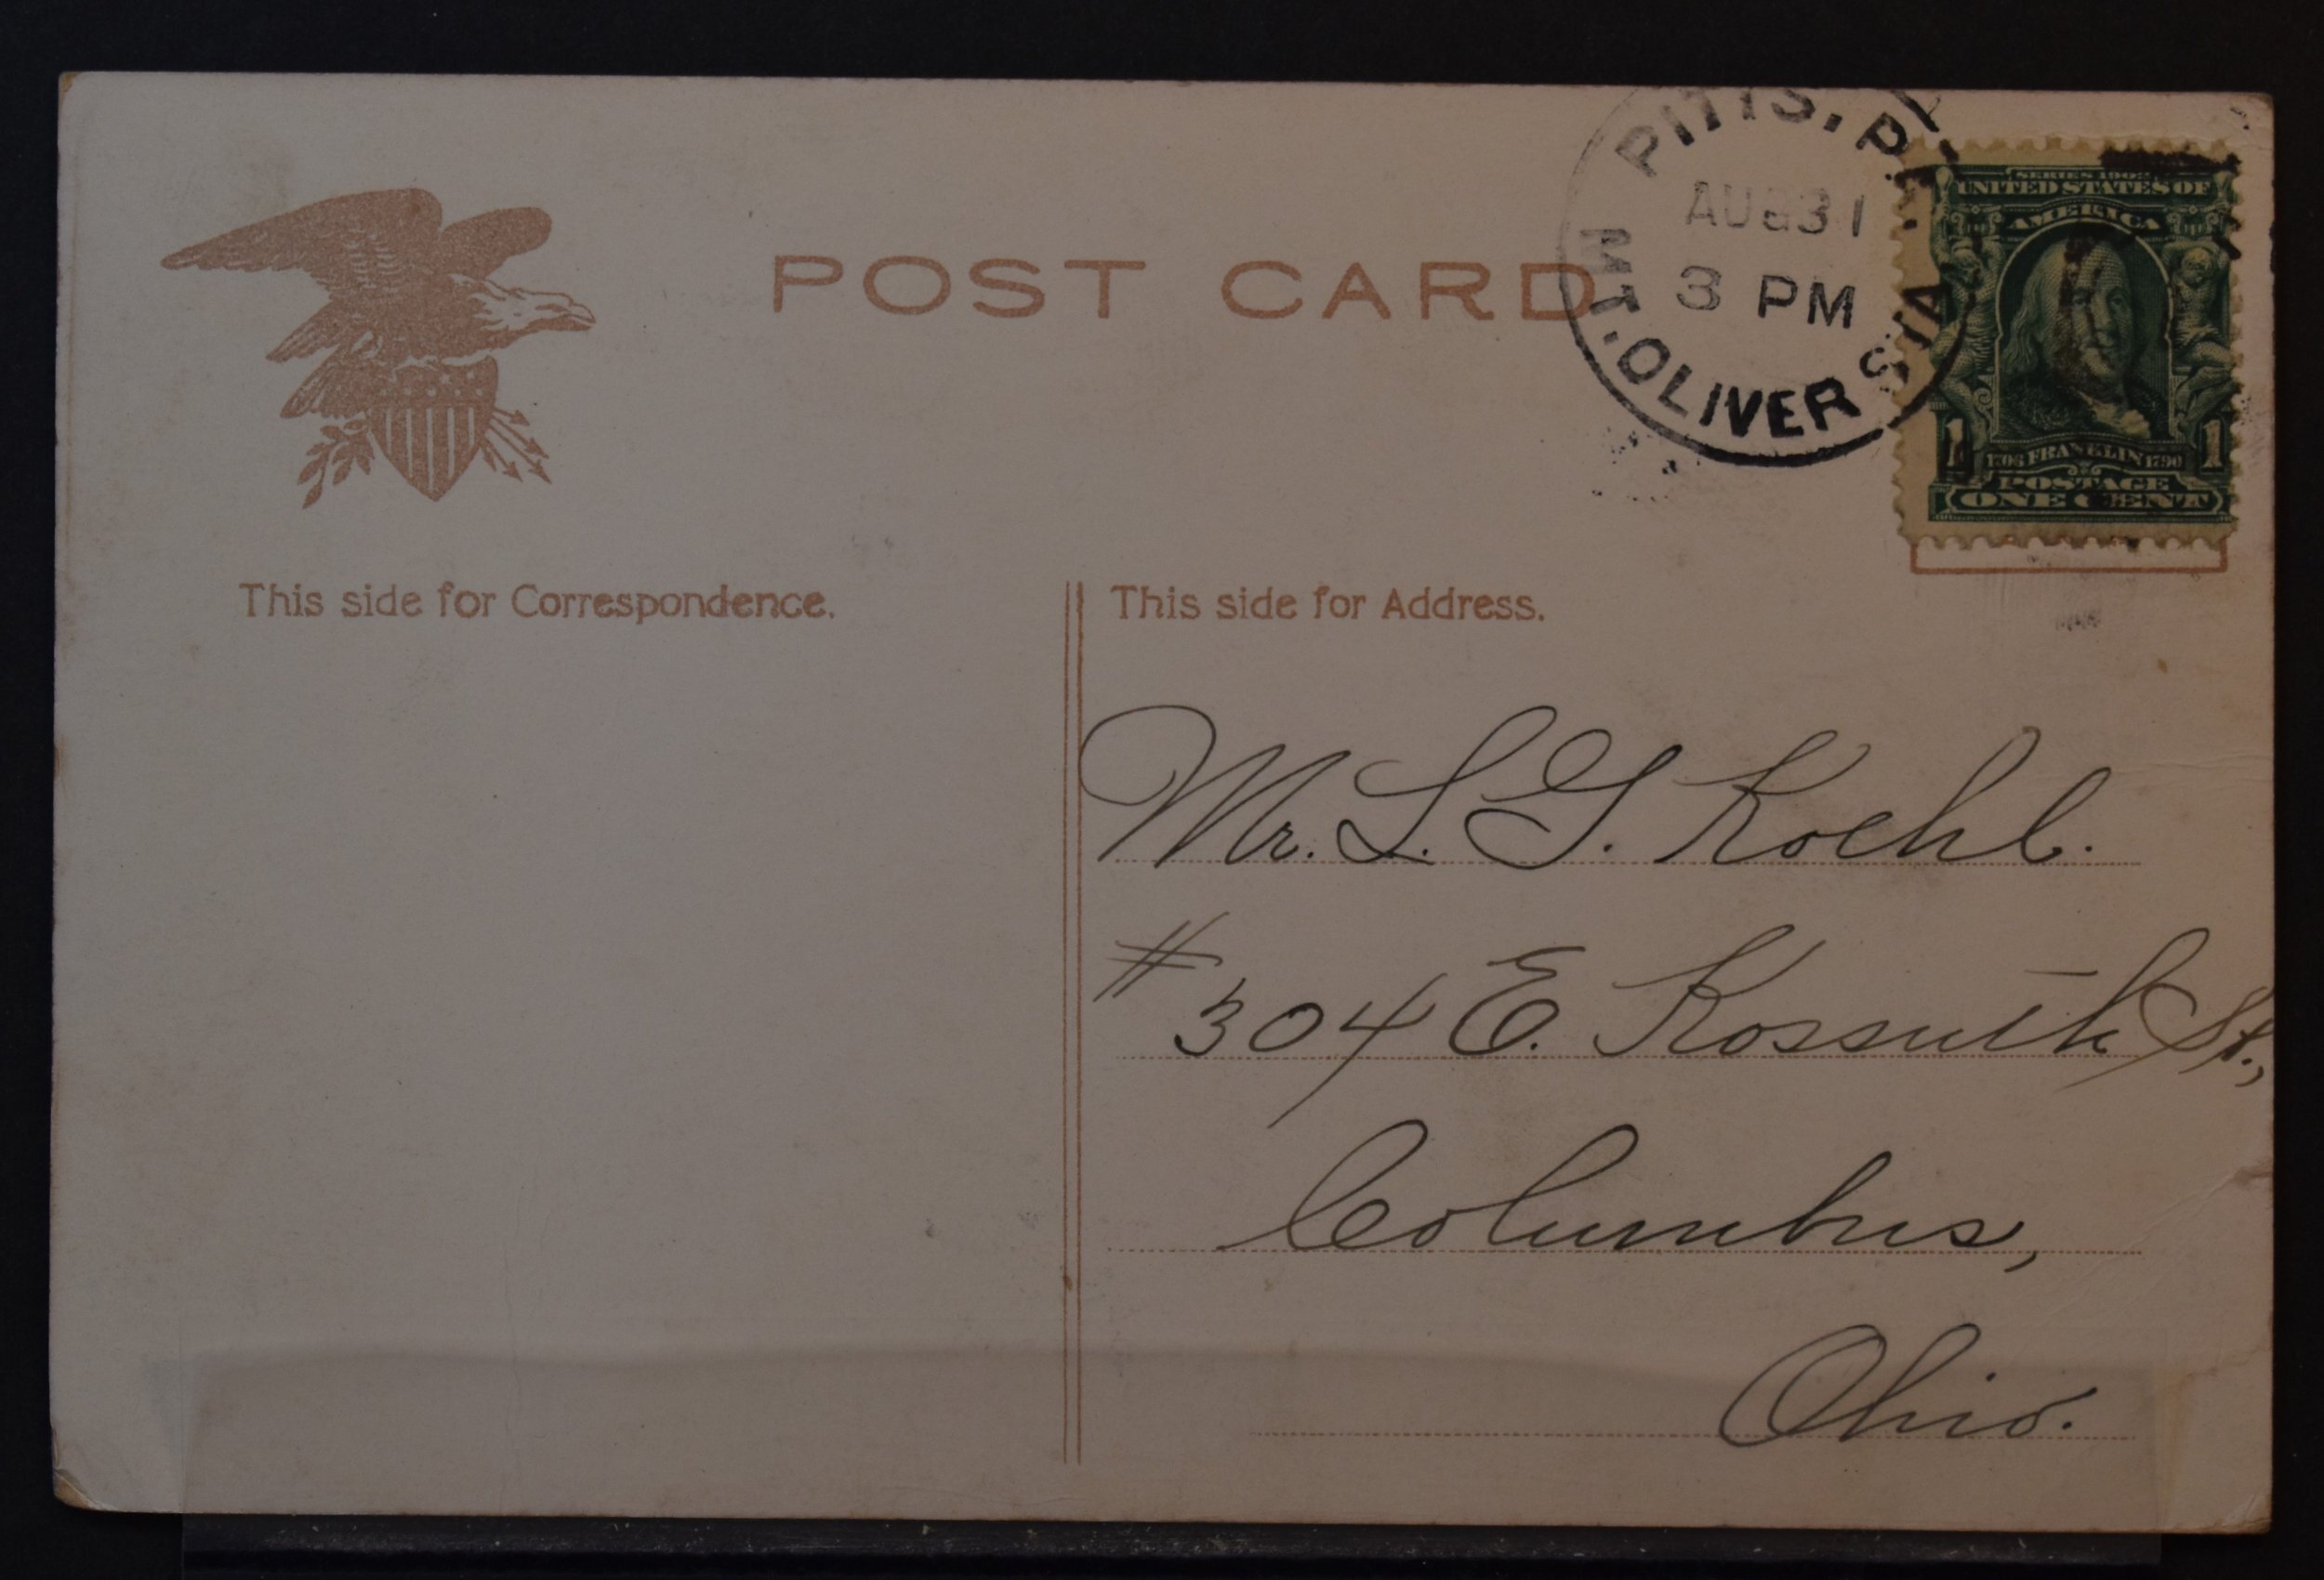 POST CARD
PITTS, PA.
AUG 31
3 PM
MT. OLIVER STA
SERIES 1902
UNITED STATES OF
AMERICA
1 1
1706 FRANKLIN 1790
POSTAGE
ONE CENT
This side for Correspondence.
This side for Address.
Mr. L. G. Koehl.
# 304 E. Kossuth St.,
Columbus,
Ohio.